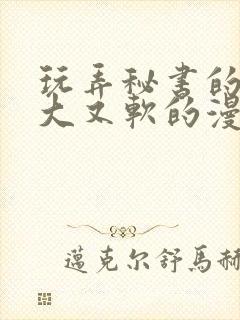 玩弄秘书的
大又軟的漫
邁克尔舒馬赫